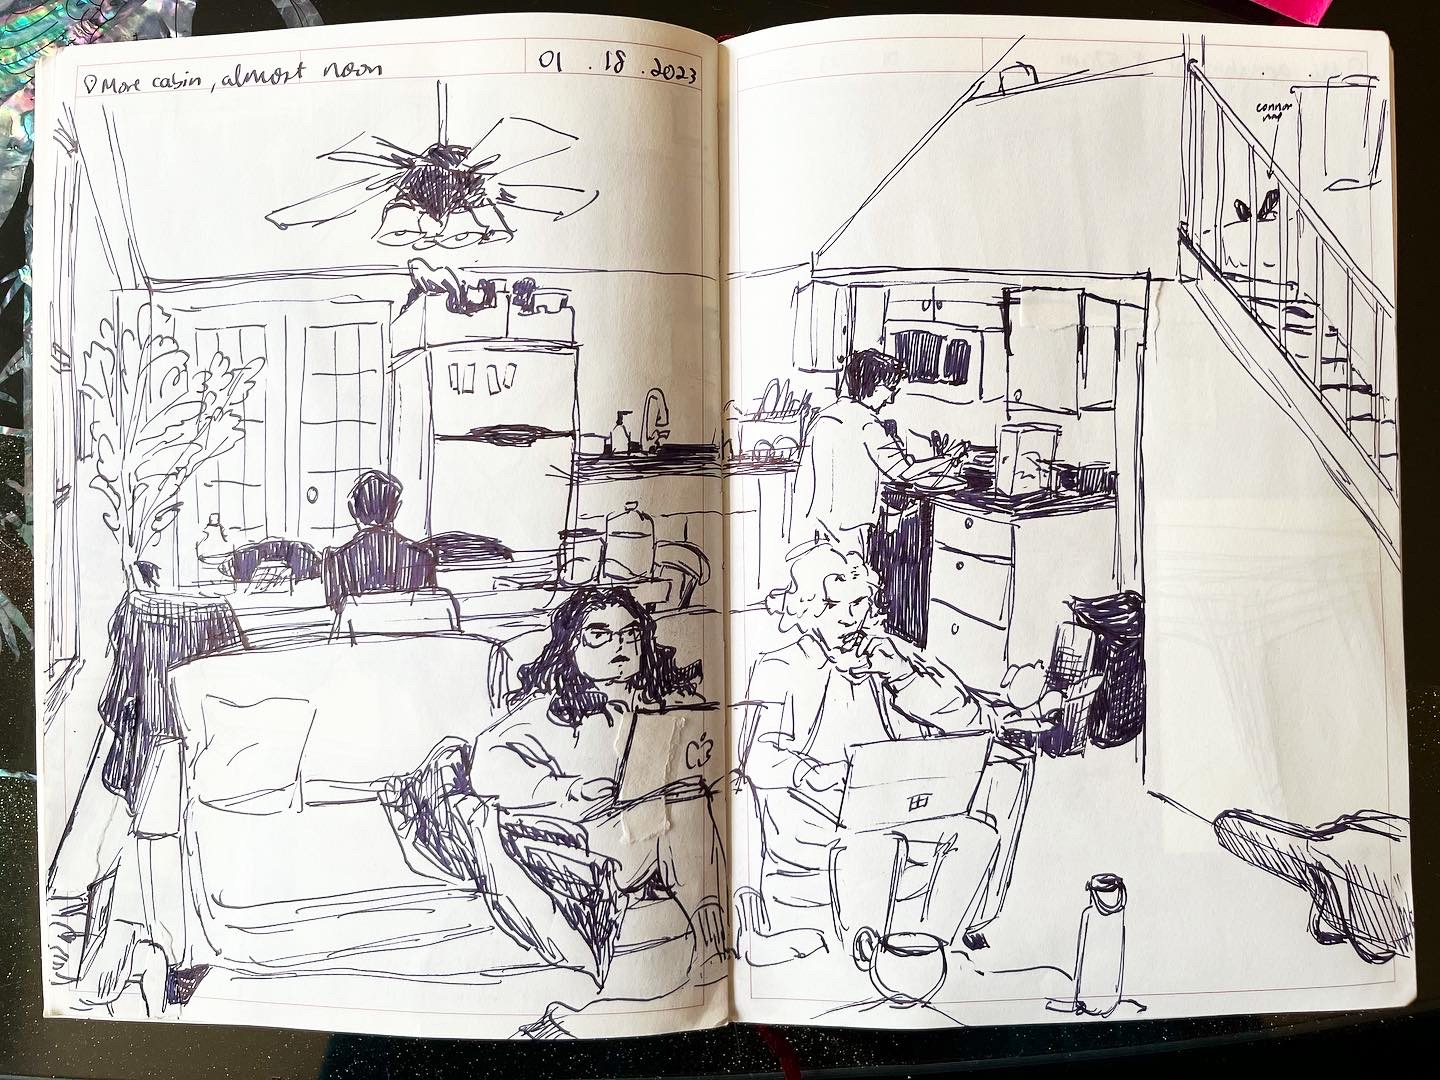 More cabin, almost noon
01 . 18 . 2023
connor
nap